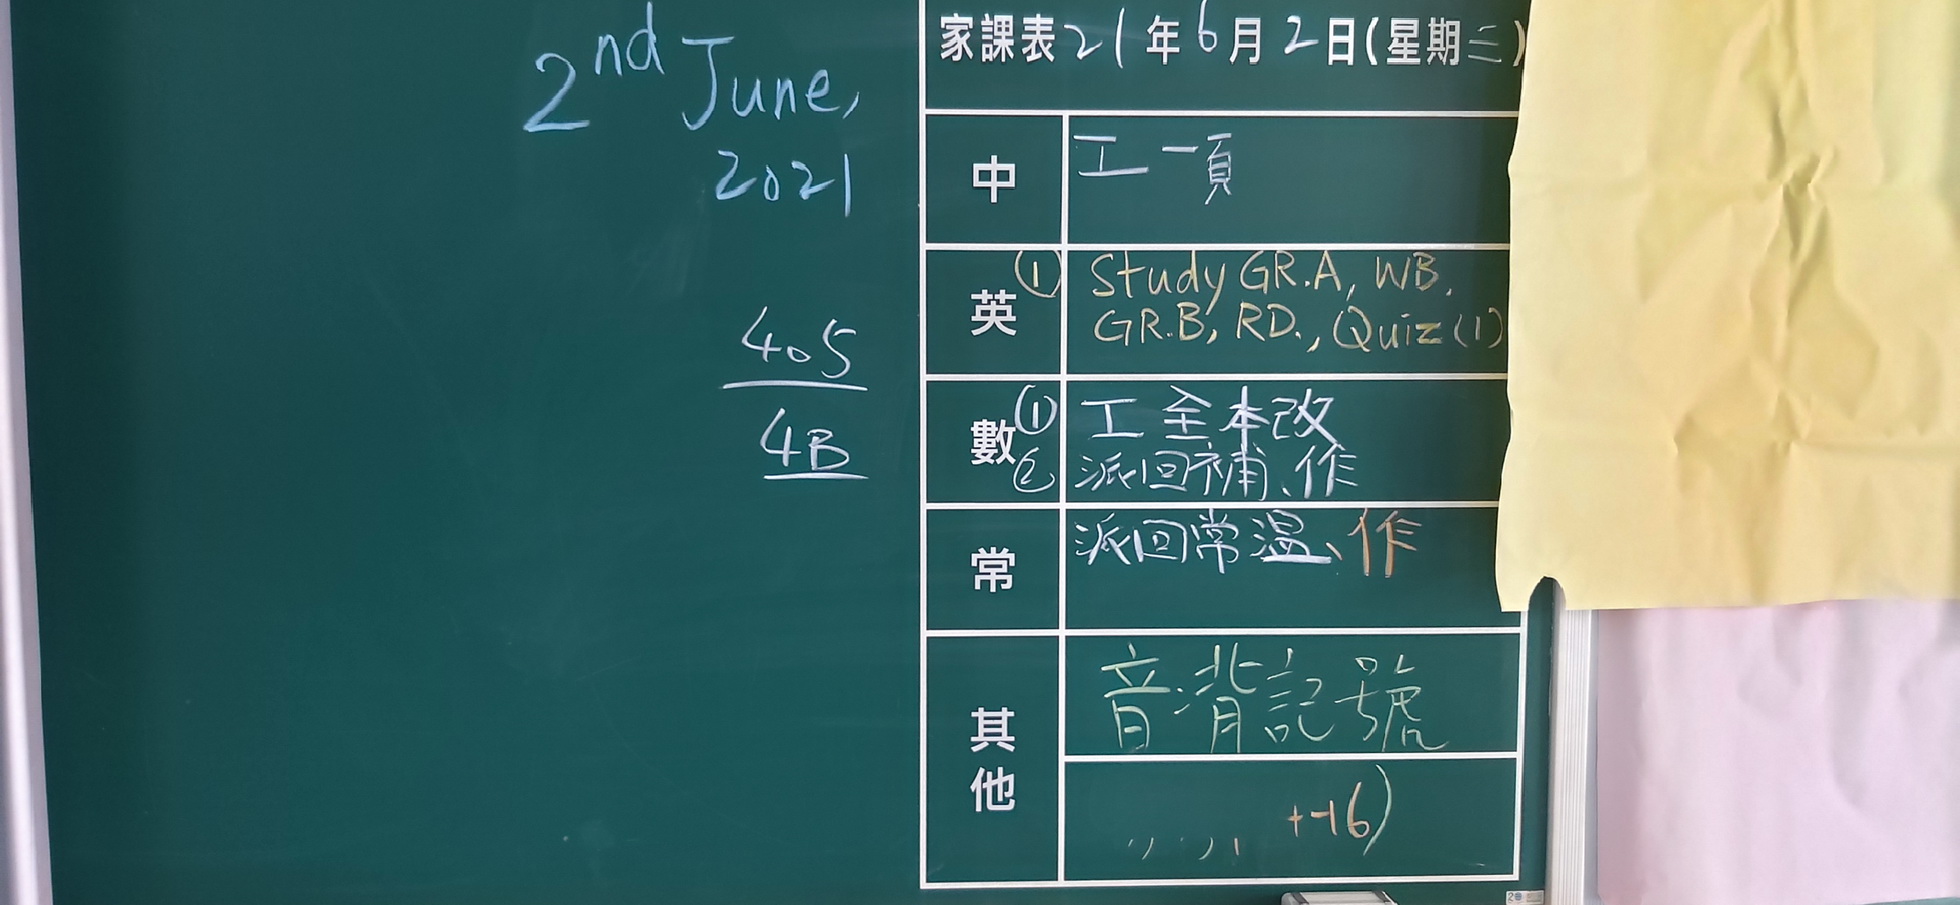 2nd June,
2021
405
4B
家課表21年6月2日(星期三)
中
工一頁
英
① Study GR.A, WB,
GR.B, RD., Quiz(1)
數
① 工全本改
② 派回補、作
常
派回常溫、作
其他
音:背記號
16)